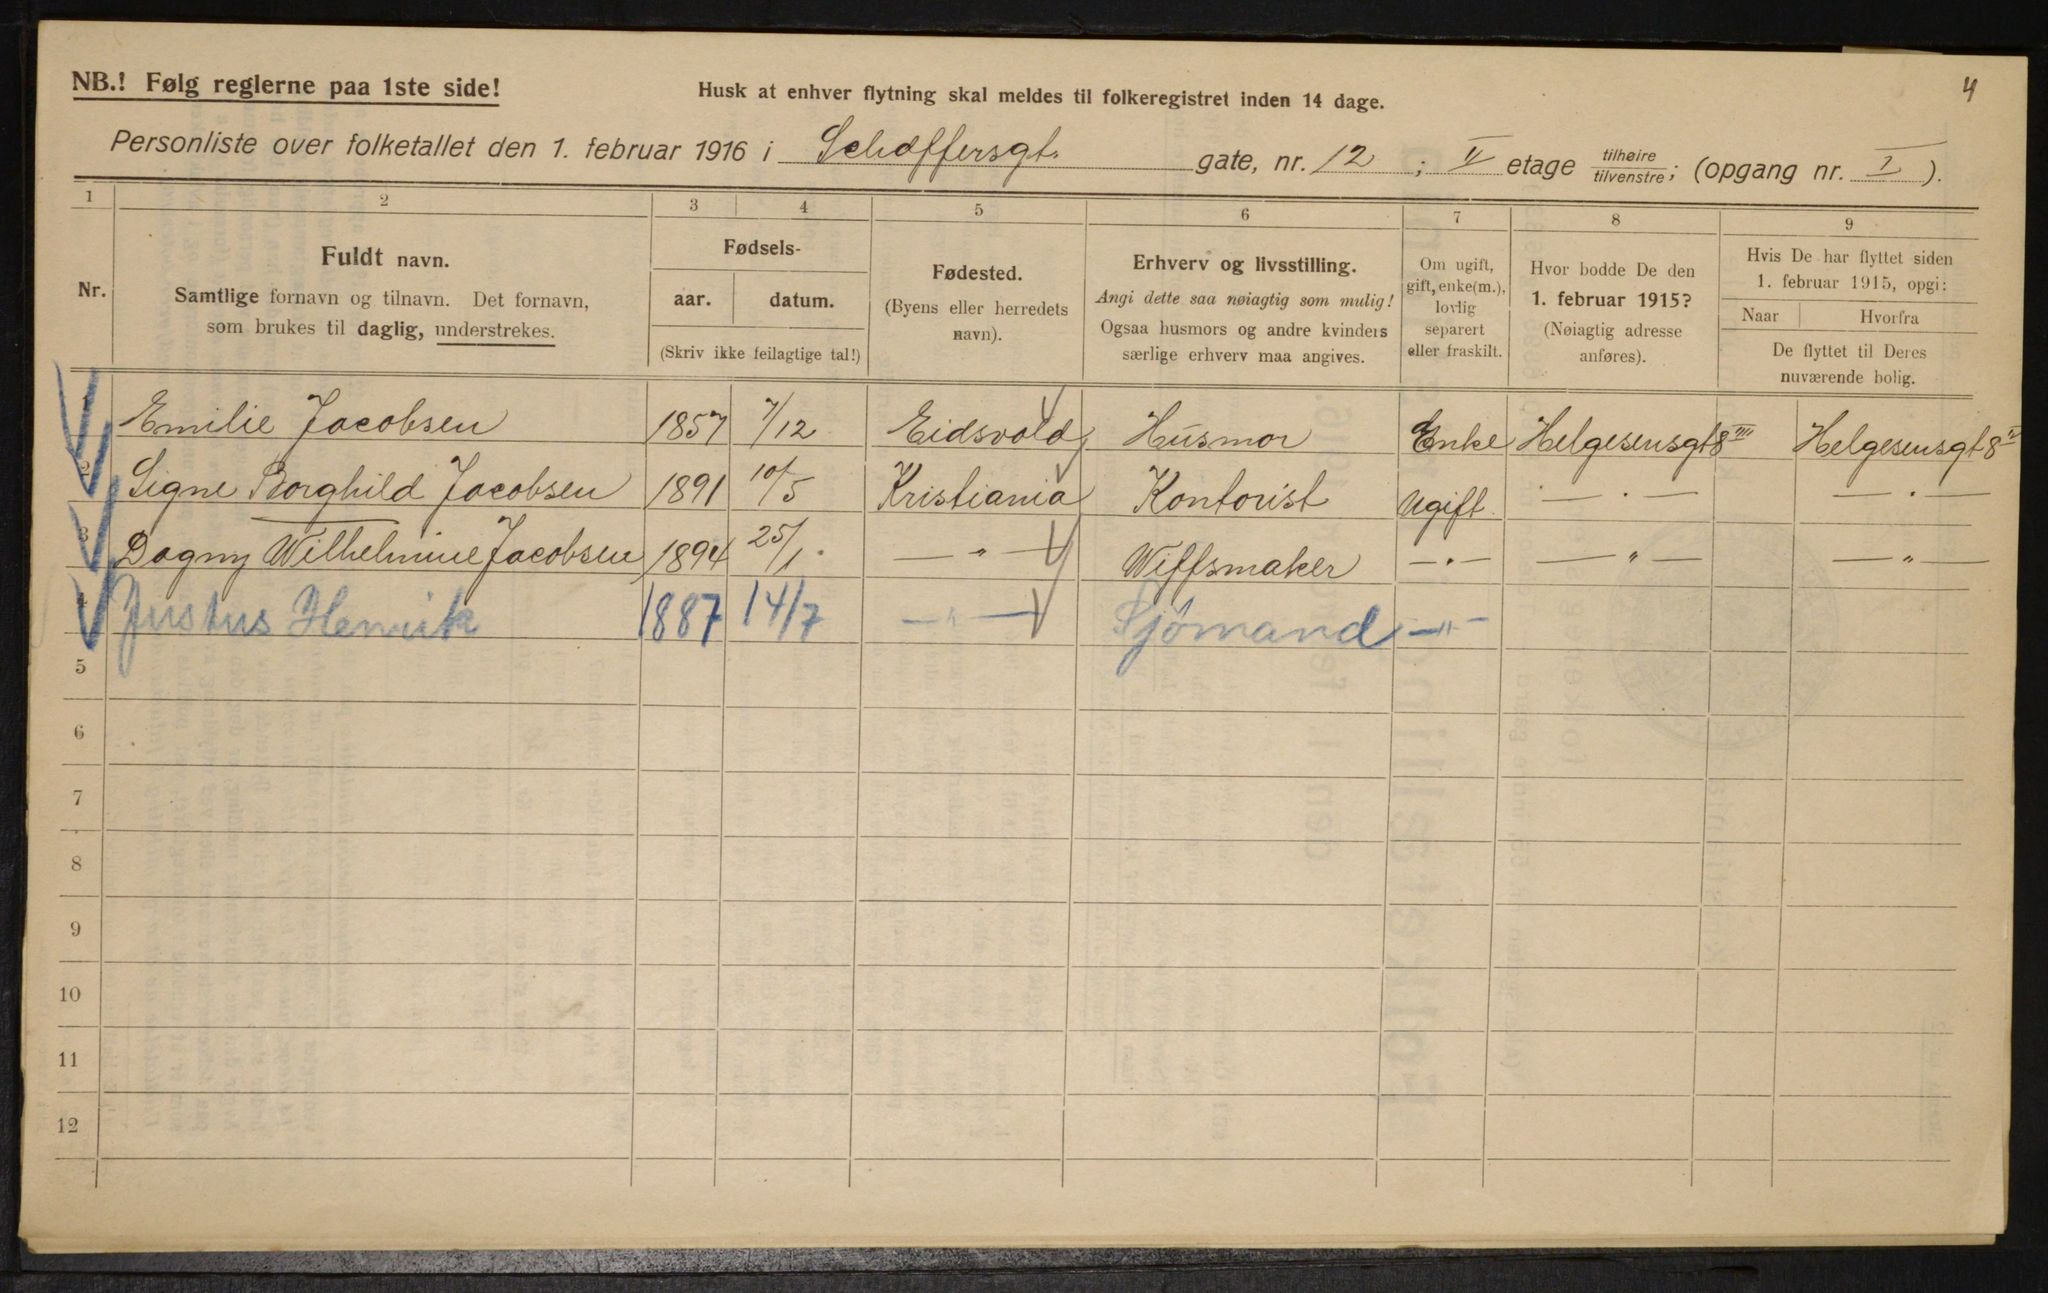 4
NB.! Følg reglerne paa 1ste side!
Husk at enhver flytning skal meldes til folkeregistret inden 14 dage.
Personliste over folketallet den 1. februar 1916 i Schøffersgt. gate, nr. 12 ; II etage tilhøire tilvenstre; (opgang nr. I ).
1 2 3 4 5 6 7 8 9
Nr.
Fuldt navn.
Samtlige fornavn og tilnavn. Det fornavn,
som brukes til daglig, understrekes.
Fødsels-
aar. datum.
(Skriv ikke feilagtige tal!)
Fødested.
(Byens eller herredets
navn).
Erhverv og livsstilling.
Angi dette saa nøiagtig som mulig!
Ogsaa husmors og andre kvinders
særlige erhverv maa angives.
Om ugift,
gift, enke(m.),
lovlig
separert
eller fraskilt.
Hvor bodde De den
1. februar 1915?
(Nøiagtig adresse
anføres).
Hvis De har flyttet siden
1. februar 1915, opgi:
Naar Hvorfra
De flyttet til Deres
nuværende bolig.
1 Emilie Jacobsen 1857 7/12 Eidsvold Husmor Enke Helgesensgt 8 III Helgesensgt 8 II
2 Signe Borghild Jacobsen 1891 10/5 Kristiania Kontorist Ugift — " — — " —
3 Dagny Wilhelmine Jacobsen 1894 25/1. — " — Wiffsmaker — " — — " — — " —
4 Justus Henrik 1887 14/7 — " — Sjömand — " —
5
6
7
8
9
10
11
12